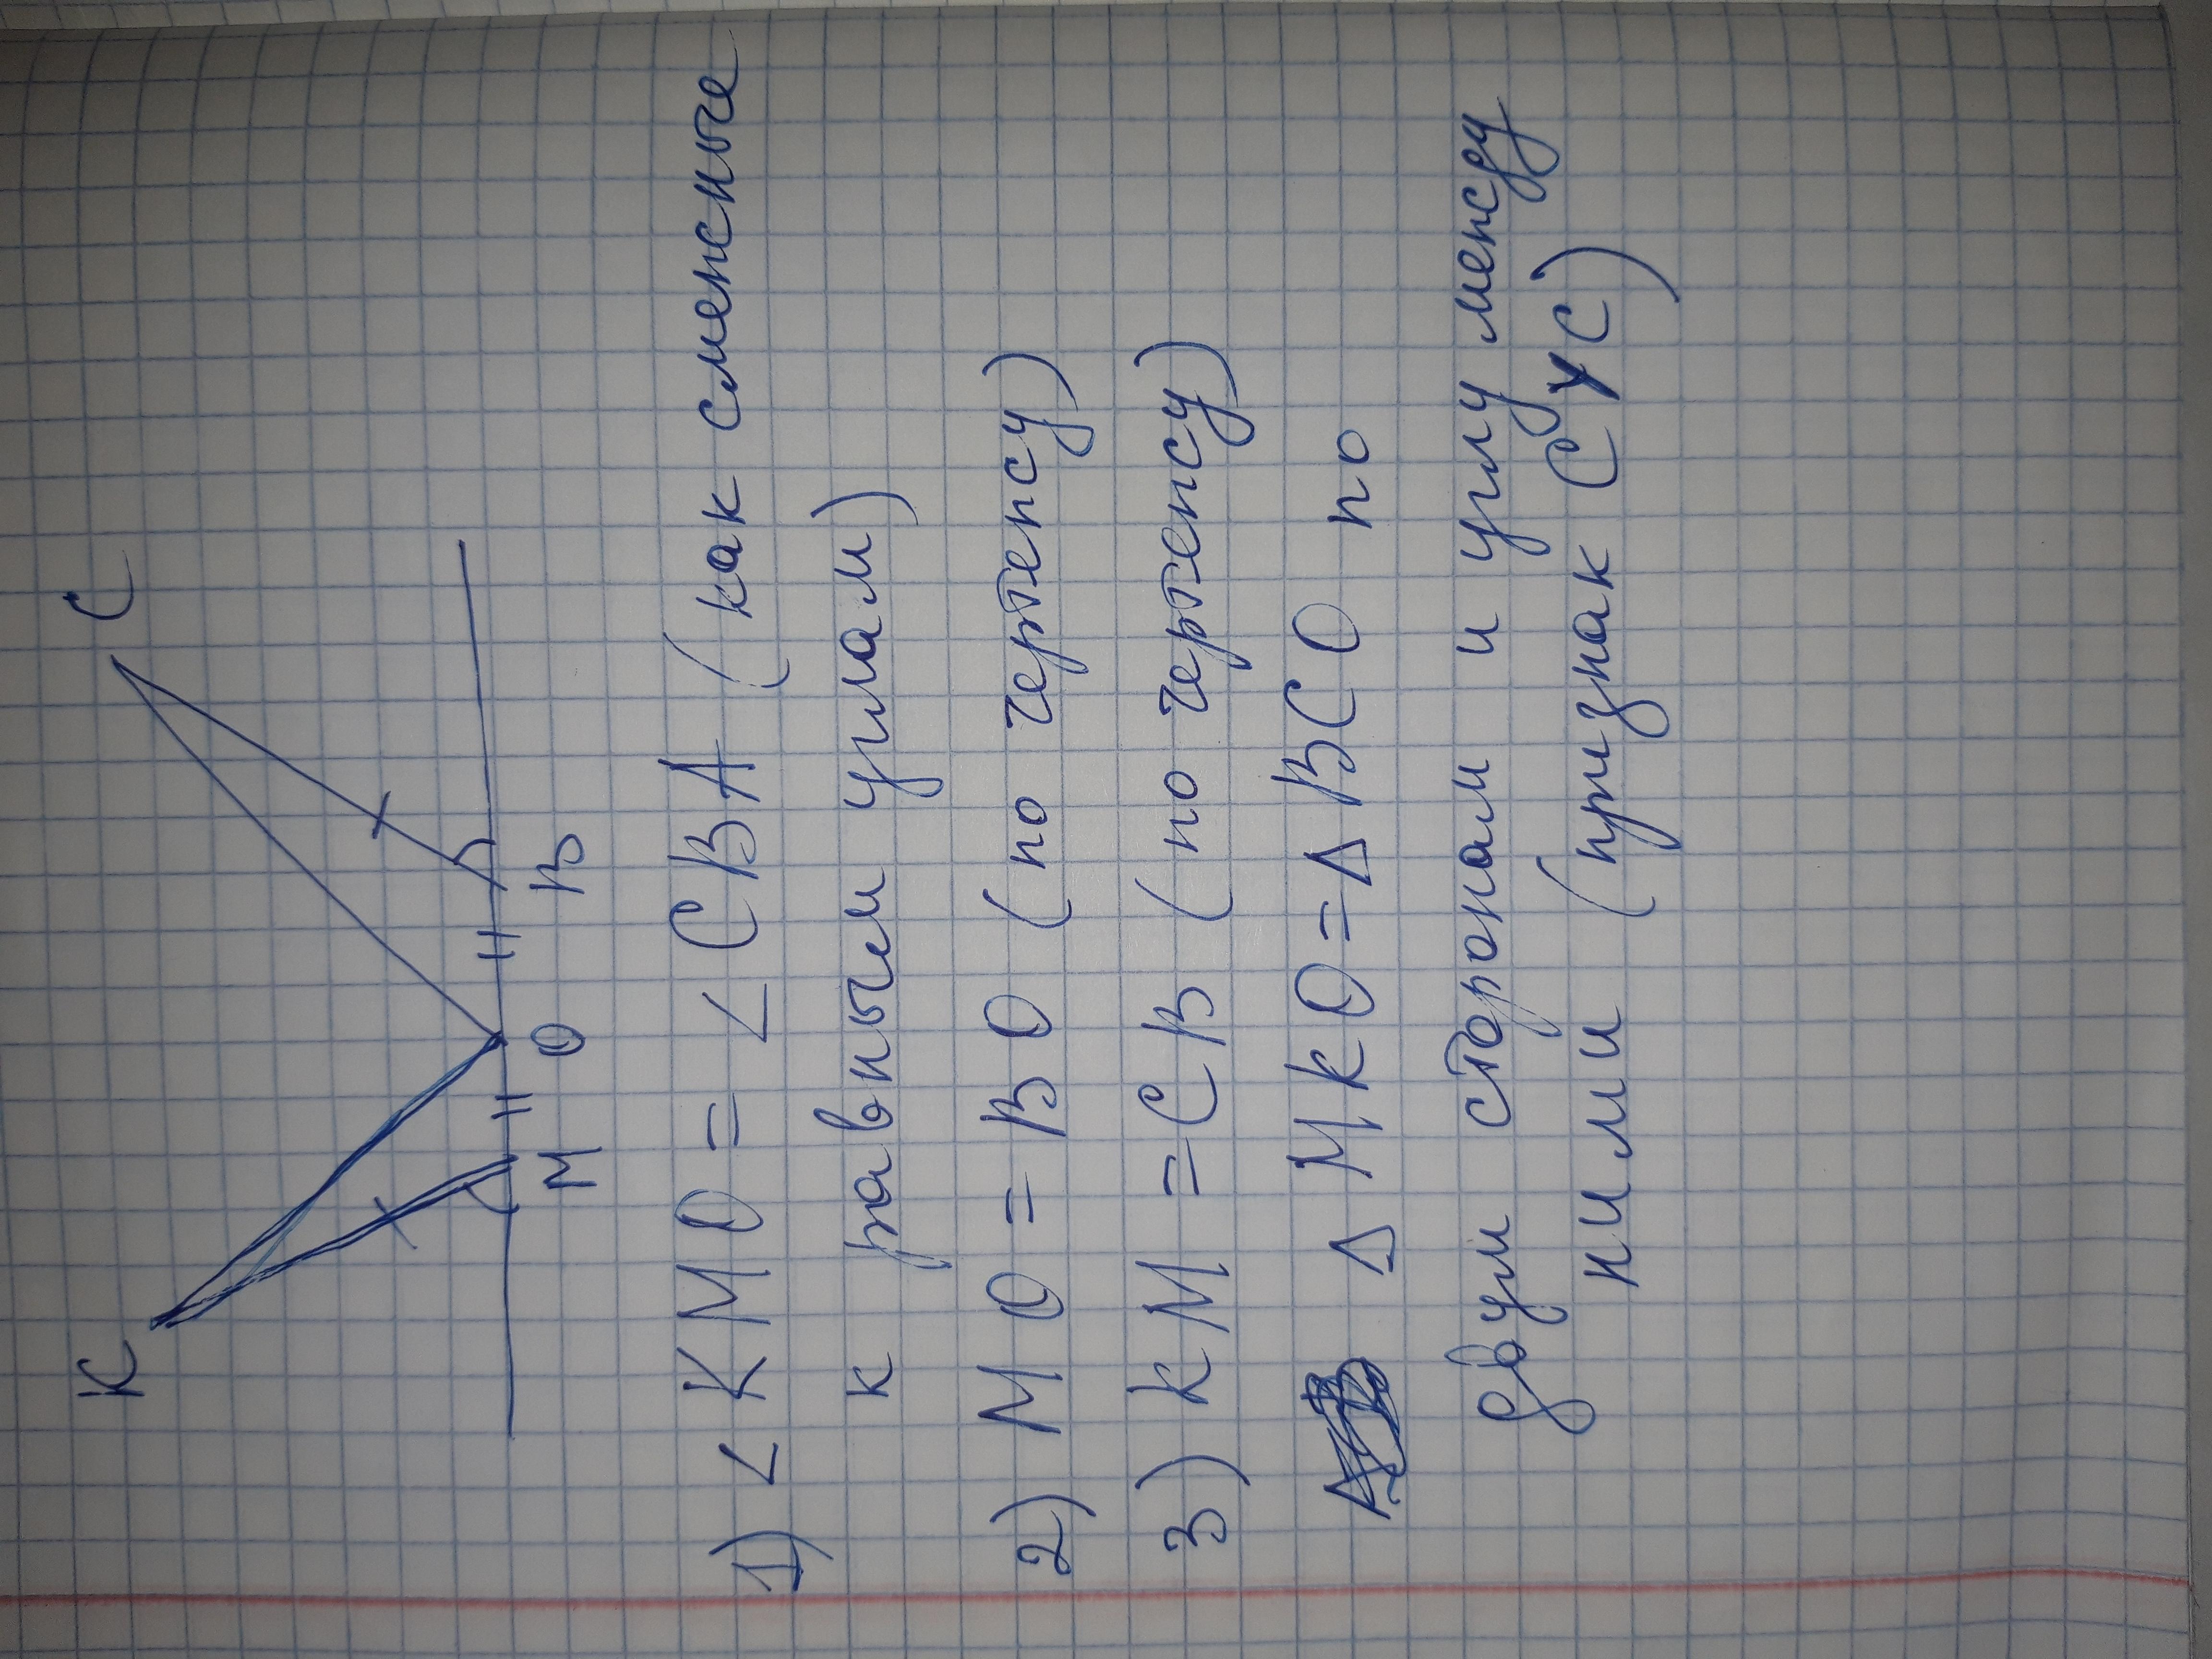 K C
M O B
1) ∠KMO = ∠CBA (как смежные
к равным углам)
2) MO = BO (по чертежу)
3) KM = CB (по чертежу)
Δ MKO = Δ BCO по
двум сторонам и углу между
ними (признак СУС)